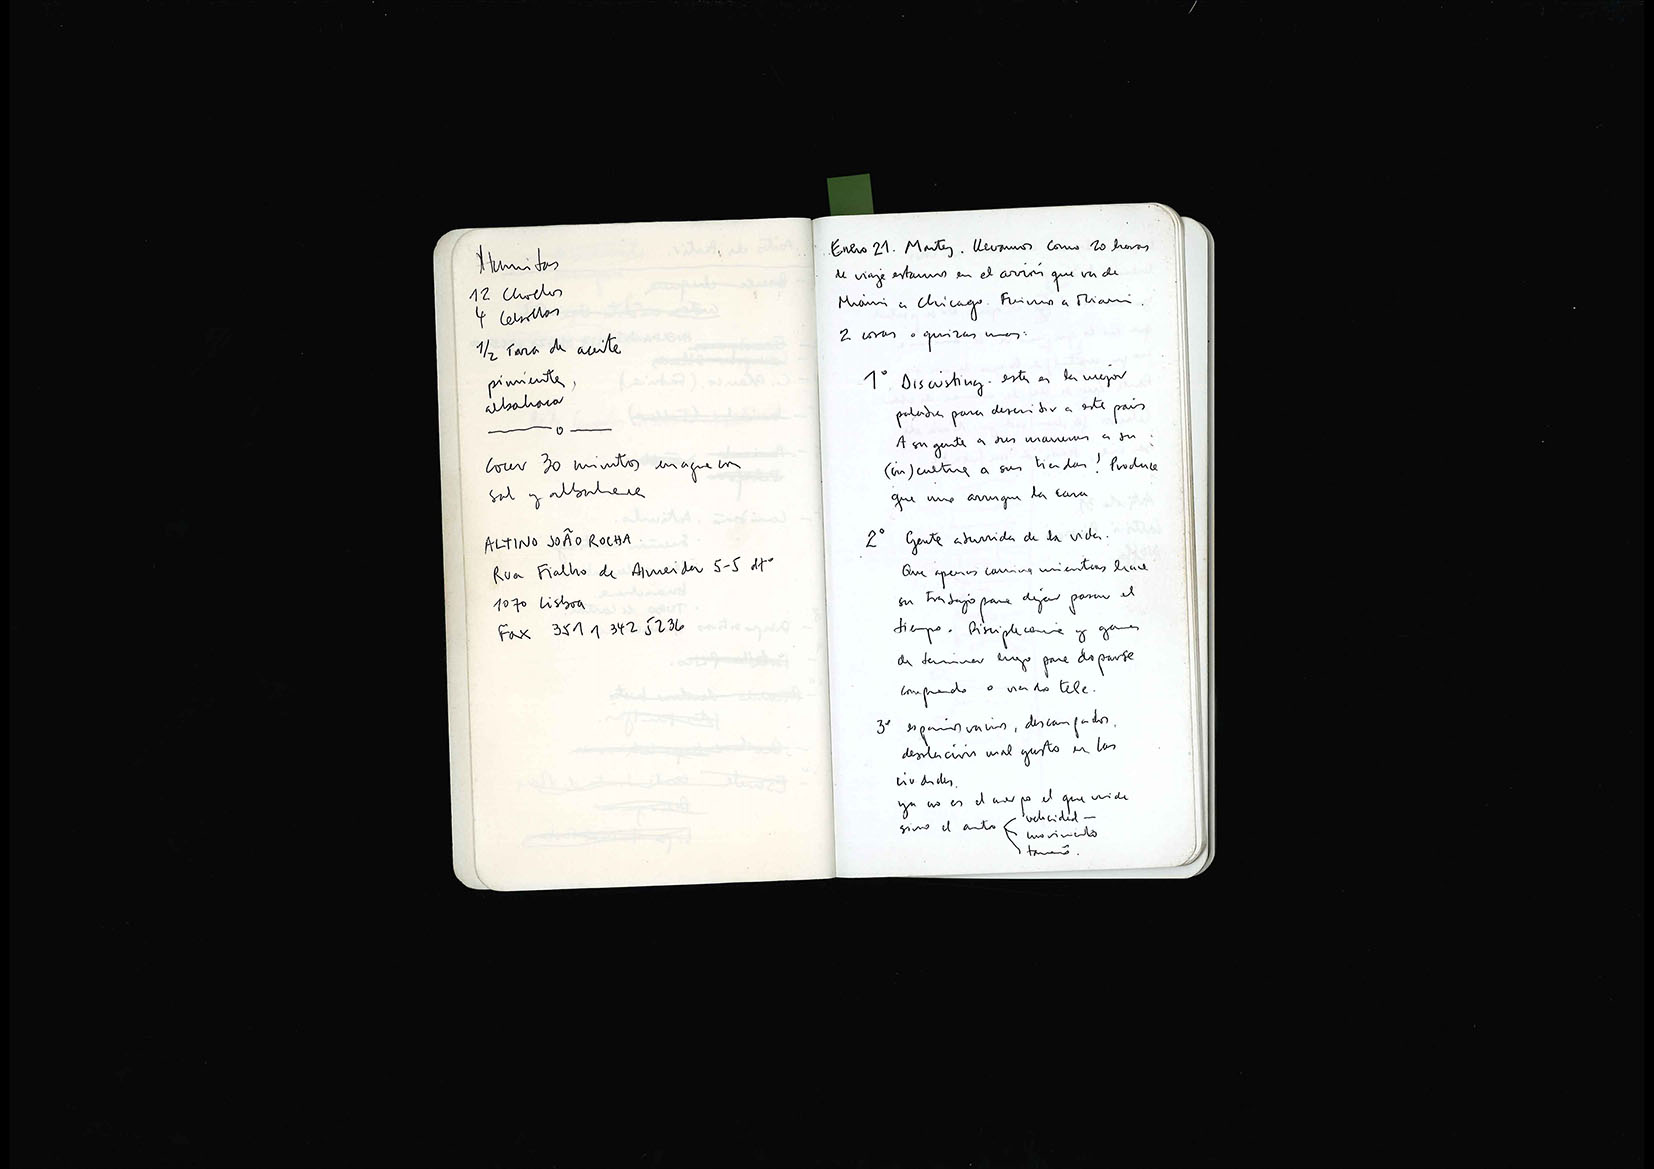 Humitas
12 Choclos
4 Cebollas
1/2 Taza de aceite
pimienta,
albahaca
o
Cocer 30 minutos en agua con
sal y albahaca
ALTINO JOÃO ROCHA
Rua Fialho de Almeida 5-5 dtº
1070 Lisboa
Fax 351 1 342 5236
Enero 21. Martes. Llevamos como 20 horas
de viaje estamos en el avión que va de
Miami a Chicago. Fuimos a Miami.
2 cosas o quizas mas:
1° Discusting. esta es la mejor
palabra para describir a este pais
A su gente a sus maneras a su
(in)cultura a sus tiendas! Produce
que uno arrugue la cara
2° Gente aburrida de la vida.
Que apenas camina mientras hace
su trabajo para dejar pasar el
tiempo. y ganas
de terminar luego para doparse
comprando o viendo tele.
3° espacios vacios, descampados,
desolación mal gusto en las
ciudades.
ya no es el cuerpo el que mide
sino el auto velocidad –
movimiento
tamaño.